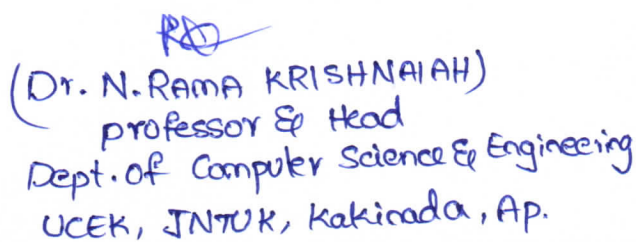 (Dr. N. RAMA KRISHNAIAH)
professor & Head
Dept. of Computer Science & Engineering
UCEK, JNTUK, Kakinada, Ap.